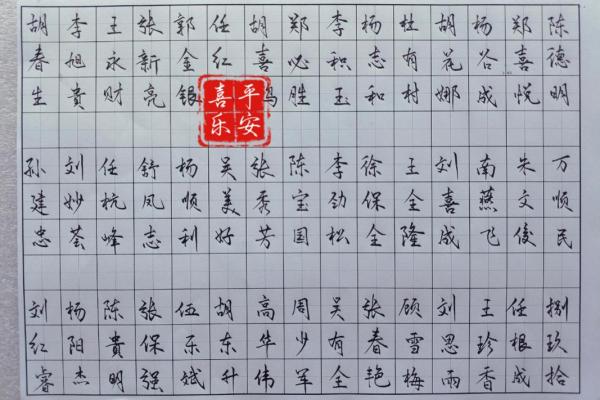 胡春生
李旭贵
王永财
张新亮
郭金银
任红
胡喜
郑必胜
李积玉
杨志和
杜有村
胡花娜
杨谷成
郑喜悦
陈德明
平安
喜乐
孙建忠
刘妙荟
任杭峰
舒凤志
杨顺利
吴美好
张秀芳
陈宝国
李劲松
徐保全
王全隆
刘喜成
南燕飞
朱文俊
万顺民
刘红睿
杨阳杰
陈贵明
张保强
伍乐斌
胡东升
高华伟
周少军
吴有全
张春艳
顾雪梅
刘思雨
王珍香
任根成
捌玖拾